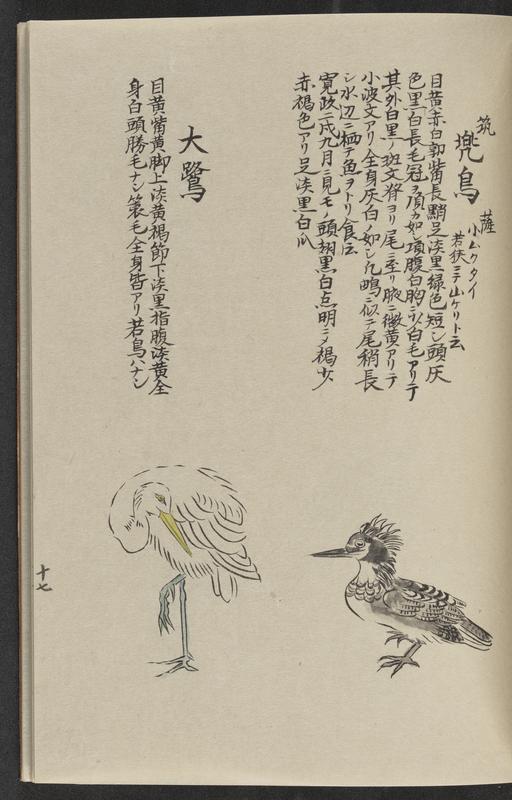 筑
兜鳥
薩
小ムクタイ
若狭ニテ山ケリト云
目黄赤白郭觜長黯足淡黒緑色短シ頭灰
色里白長毛冠ヲ頂カ如項腹白胸ニ少白毛アリテ
其外白里ノ斑文脊ヨリ尾ニ至リ脓ニ微黄アリテ
小波文アリ全身灰白ノ如シ凡鴫ニ似テ尾稍長
シ水辺ニ栖テ魚ヲトリ食云
寛政二戌九月ニ見モノ頭翅黒白点明ニメ褐少
赤褐色アリ足淡里白爪
大鷺
目黄觜黄脚上淡黄褐節下淡里指腹淡黄全
身白頭勝毛ナシ簑毛全身皆アリ若鳥ハナシ
十七